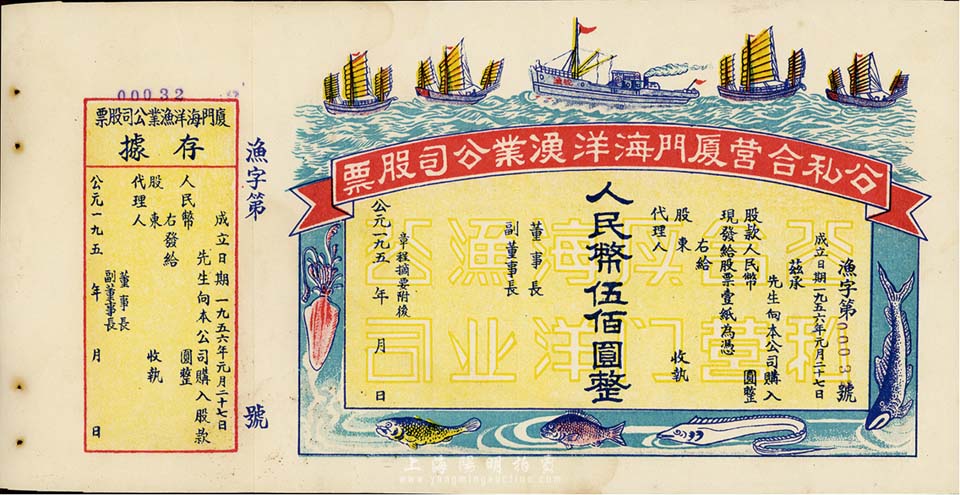 公私合营厦門海洋漁業公司股票
漁字第00032號
成立日期一九五六年元月二十七日
茲承
先生向本公司購入
股款人民幣 圓整
現發給股票壹紙為憑
右給
股東 收執
代理人
人民幣伍佰圓整
董事長
副董事長
章程摘要附後
公元一九五 年 月 日
公私合营厦门海洋漁业公司
漁字第 號
00032
厦門海洋漁業公司股票
存據
成立日期一九五六年元月二十七日
先生向本公司購入股款
人民幣 圓整
右發給
股東 收執
代理人
董事長
副董事長
公元一九五 年 月 日
上海陽明拍賣
www.yangmingauction.com